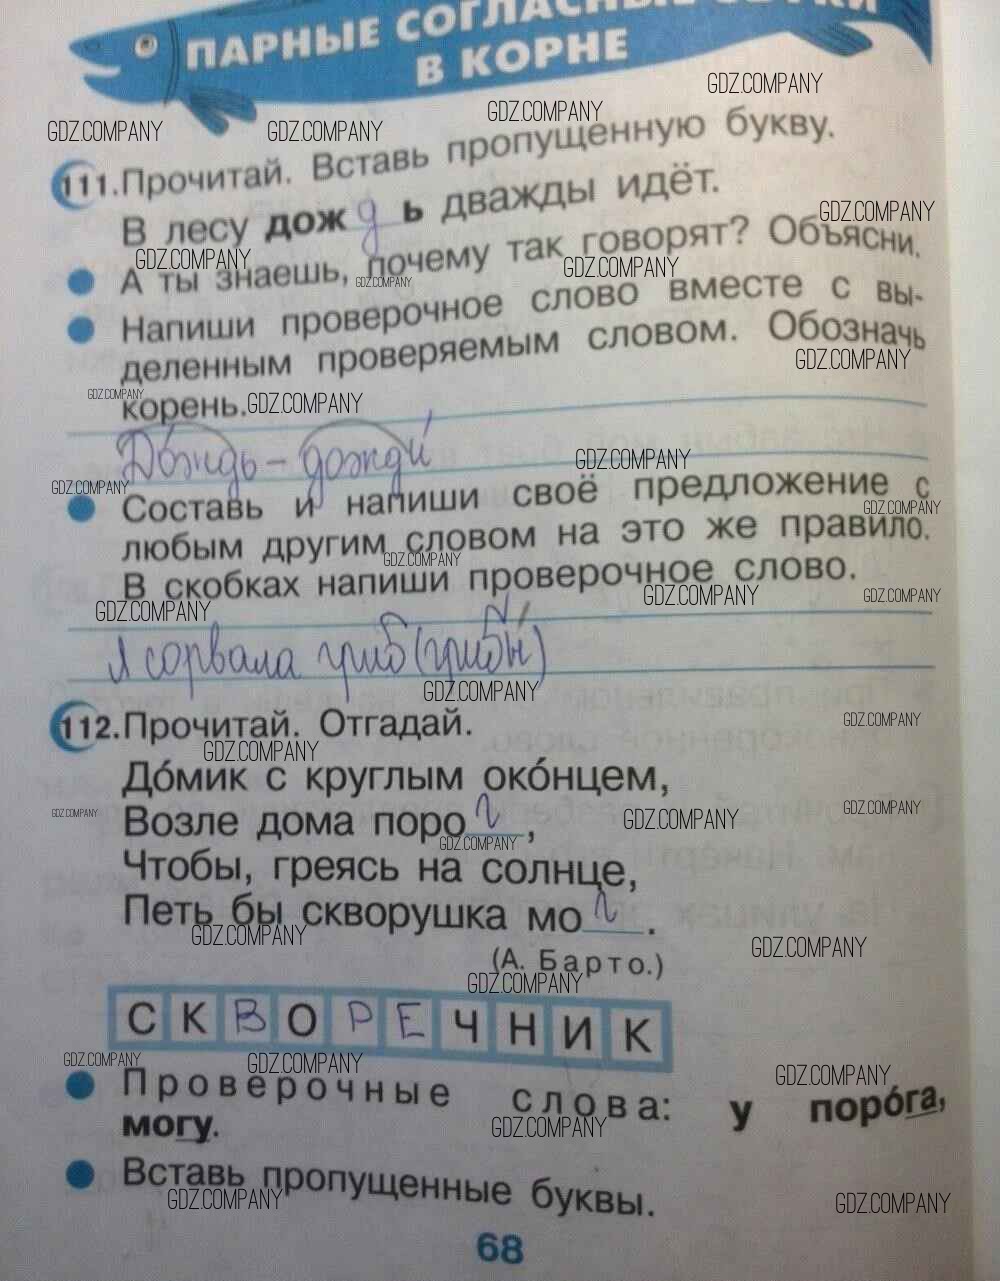 ПАРНЫЕ СОГЛАСНЫЕ ЗВУКИ
В КОРНЕ
111. Прочитай. Вставь пропущенную букву.
В лесу дождь дважды идёт.
А ты знаешь, почему так говорят? Объясни.
Напиши проверочное слово вместе с вы-
деленным проверяемым словом. Обозначь
корень.
Дождь – дожди
Составь и напиши своё предложение с
любым другим словом на это же правило.
В скобках напиши проверочное слово.
Я сорвала гриб (грибы)
112. Прочитай. Отгадай.
До́мик с круглым око́нцем,
Возле дома порог,
Чтобы, греясь на солнце,
Петь бы скворушка мог.
(А. Барто.)
СКВОРЕЧНИК
Проверочные слова: у поро́га,
могу.
Вставь пропущенные буквы.
68
GDZ.COMPANY